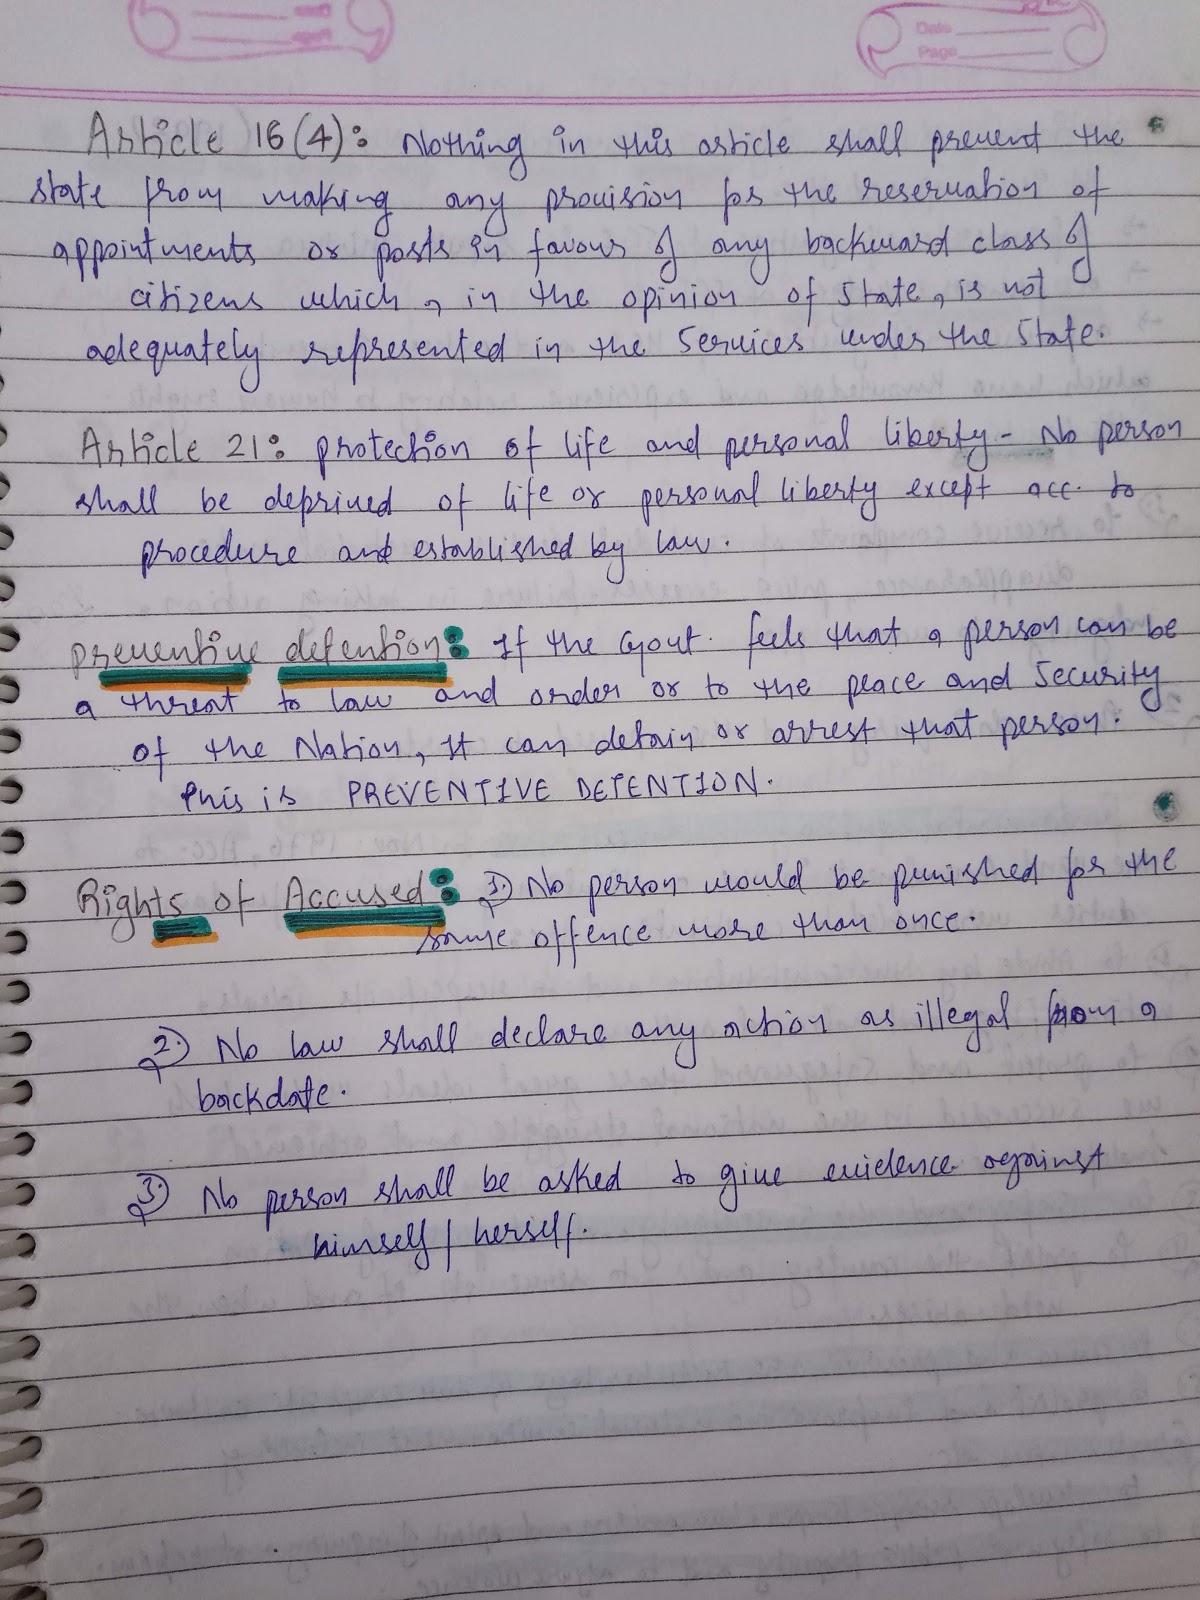 Date
Page
Article 16(4): Nothing in this article shall prevent the
state from making any provision for the reservation of
appointments or posts in favour of any backward class of
citizens which, in the opinion of State, is not
adequately represented in the Services under the State.
Article 21: protection of life and personal liberty - No person
shall be deprived of life or personal liberty except acc. to
procedure and established by law.
preventive detention: If the Govt. feels that a person can be
a threat to law and order or to the peace and Security
of the Nation, It can detain or arrest that person.
This is PREVENTIVE DETENTION.
Rights of Accused: 1) No person would be punished for the
same offence more than once.
2) No law shall declare any action as illegal from a
backdate.
3) No person shall be asked to give evidence against
himself/herself.